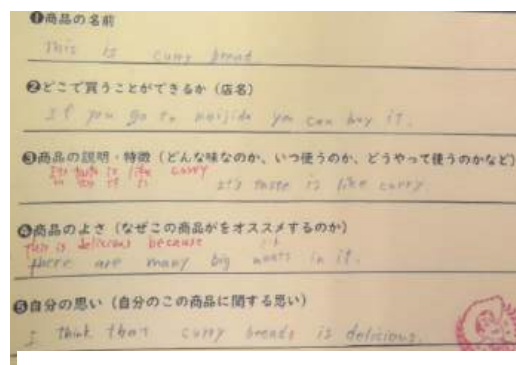 ❶商品の名前
This is curry bread.
❷どこで買うことができるか（店名）
If you go to you can buy it.
❸商品の説明・特徴（どんな味なのか、いつ使うのか、どうやって使うのかなど）
Its taste is like curry
It's taste is like curry.
❹商品のよさ（なぜこの商品がをオススメするのか）
This is delicious because
there are many big meats in it.
❺自分の思い（自分のこの商品に関する思い）
I think that curry breads is delicious.